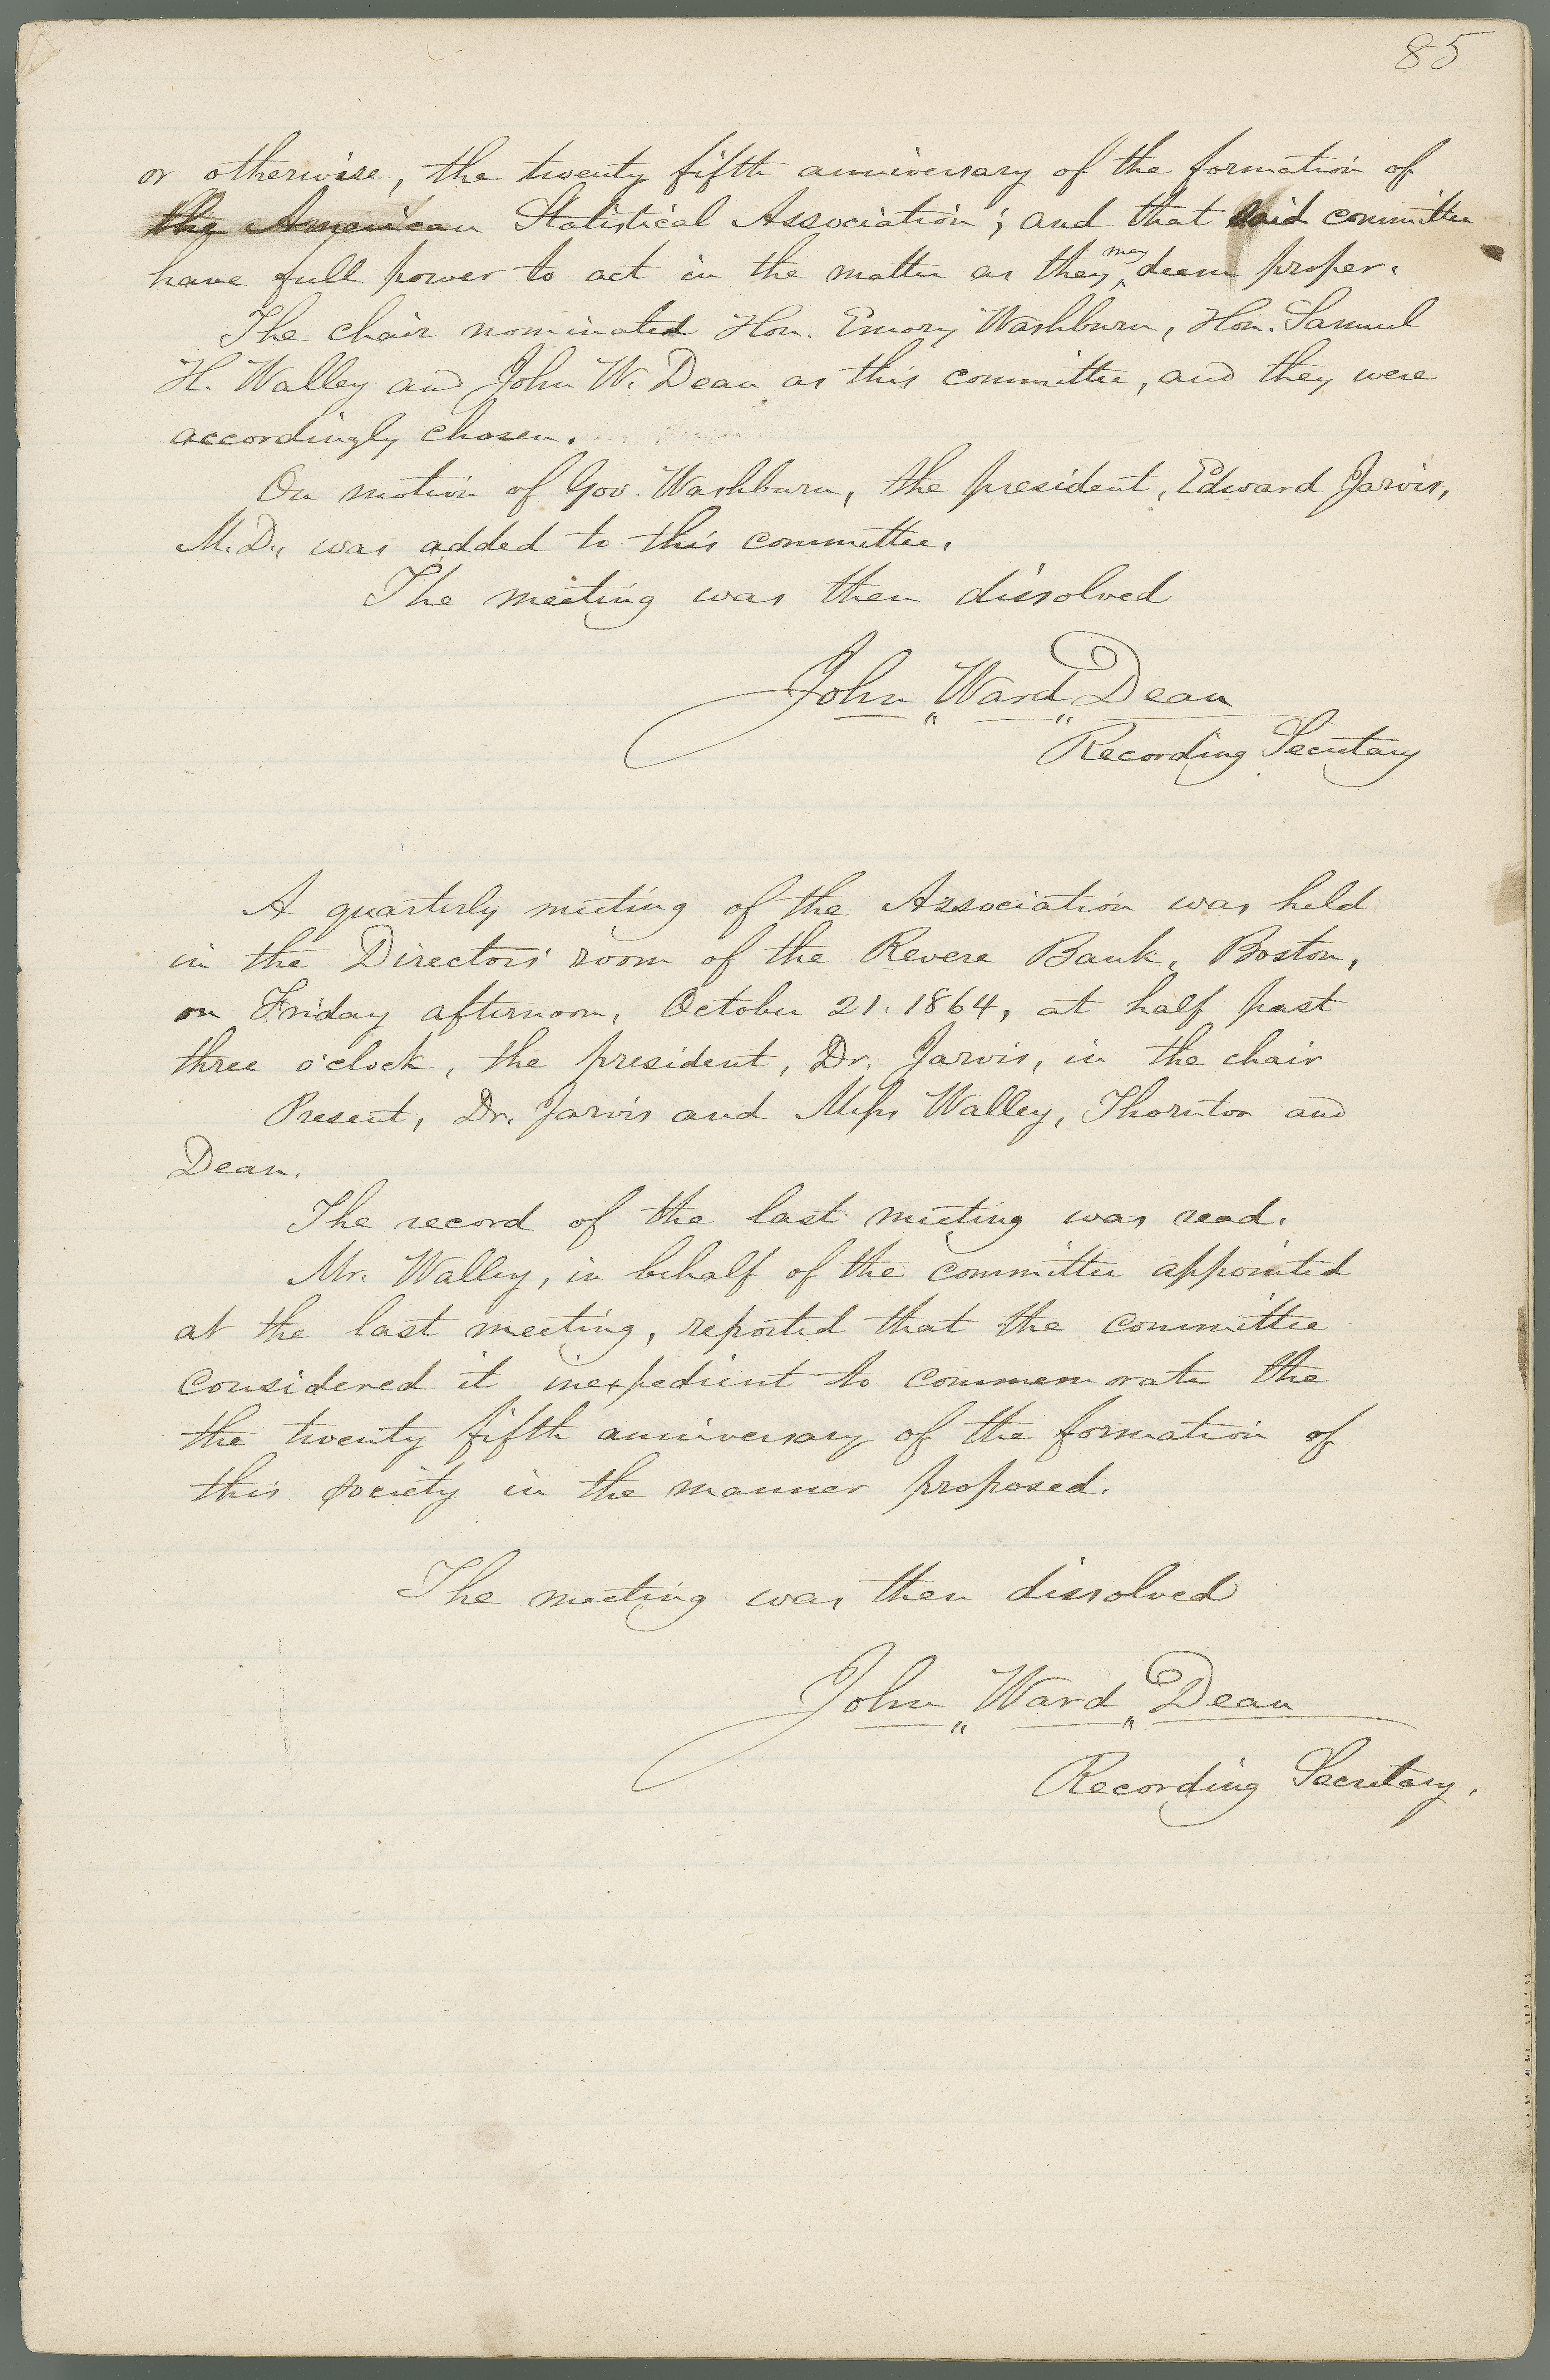 85
or otherwise, the twenty fifth anniversary of the formation of
the American Statistical Association; and that said committee
have full power to act in the matter as they may deem proper.
The chair nominated Hon. Emory Washburn, Hon. Samuel
H. Walley and John W. Dean as this committee, and they were
accordingly chosen.
On motion of Gov. Washburn, the president, Edward Jarvis,
M.D., was added to this committee.
The meeting was then dissolved
John Ward Dean
Recording Secretary
A quarterly meeting of the Association was held
in the Directors' room of the Revere Bank, Boston,
on Friday afternoon, October 21. 1864, at half past
three o'clock, the president, Dr. Jarvis, in the chair
Present, Dr. Jarvis and Messrs Walley, Thornton and
Dean.
The record of the last meeting was read.
Mr. Walley, in behalf of the committee appointed
at the last meeting, reported that the committee
considered it inexpedient to commemorate the
the twenty fifth anniversary of the formation of
this society in the manner proposed.
The meeting was then dissolved
John Ward Dean
Recording Secretary.